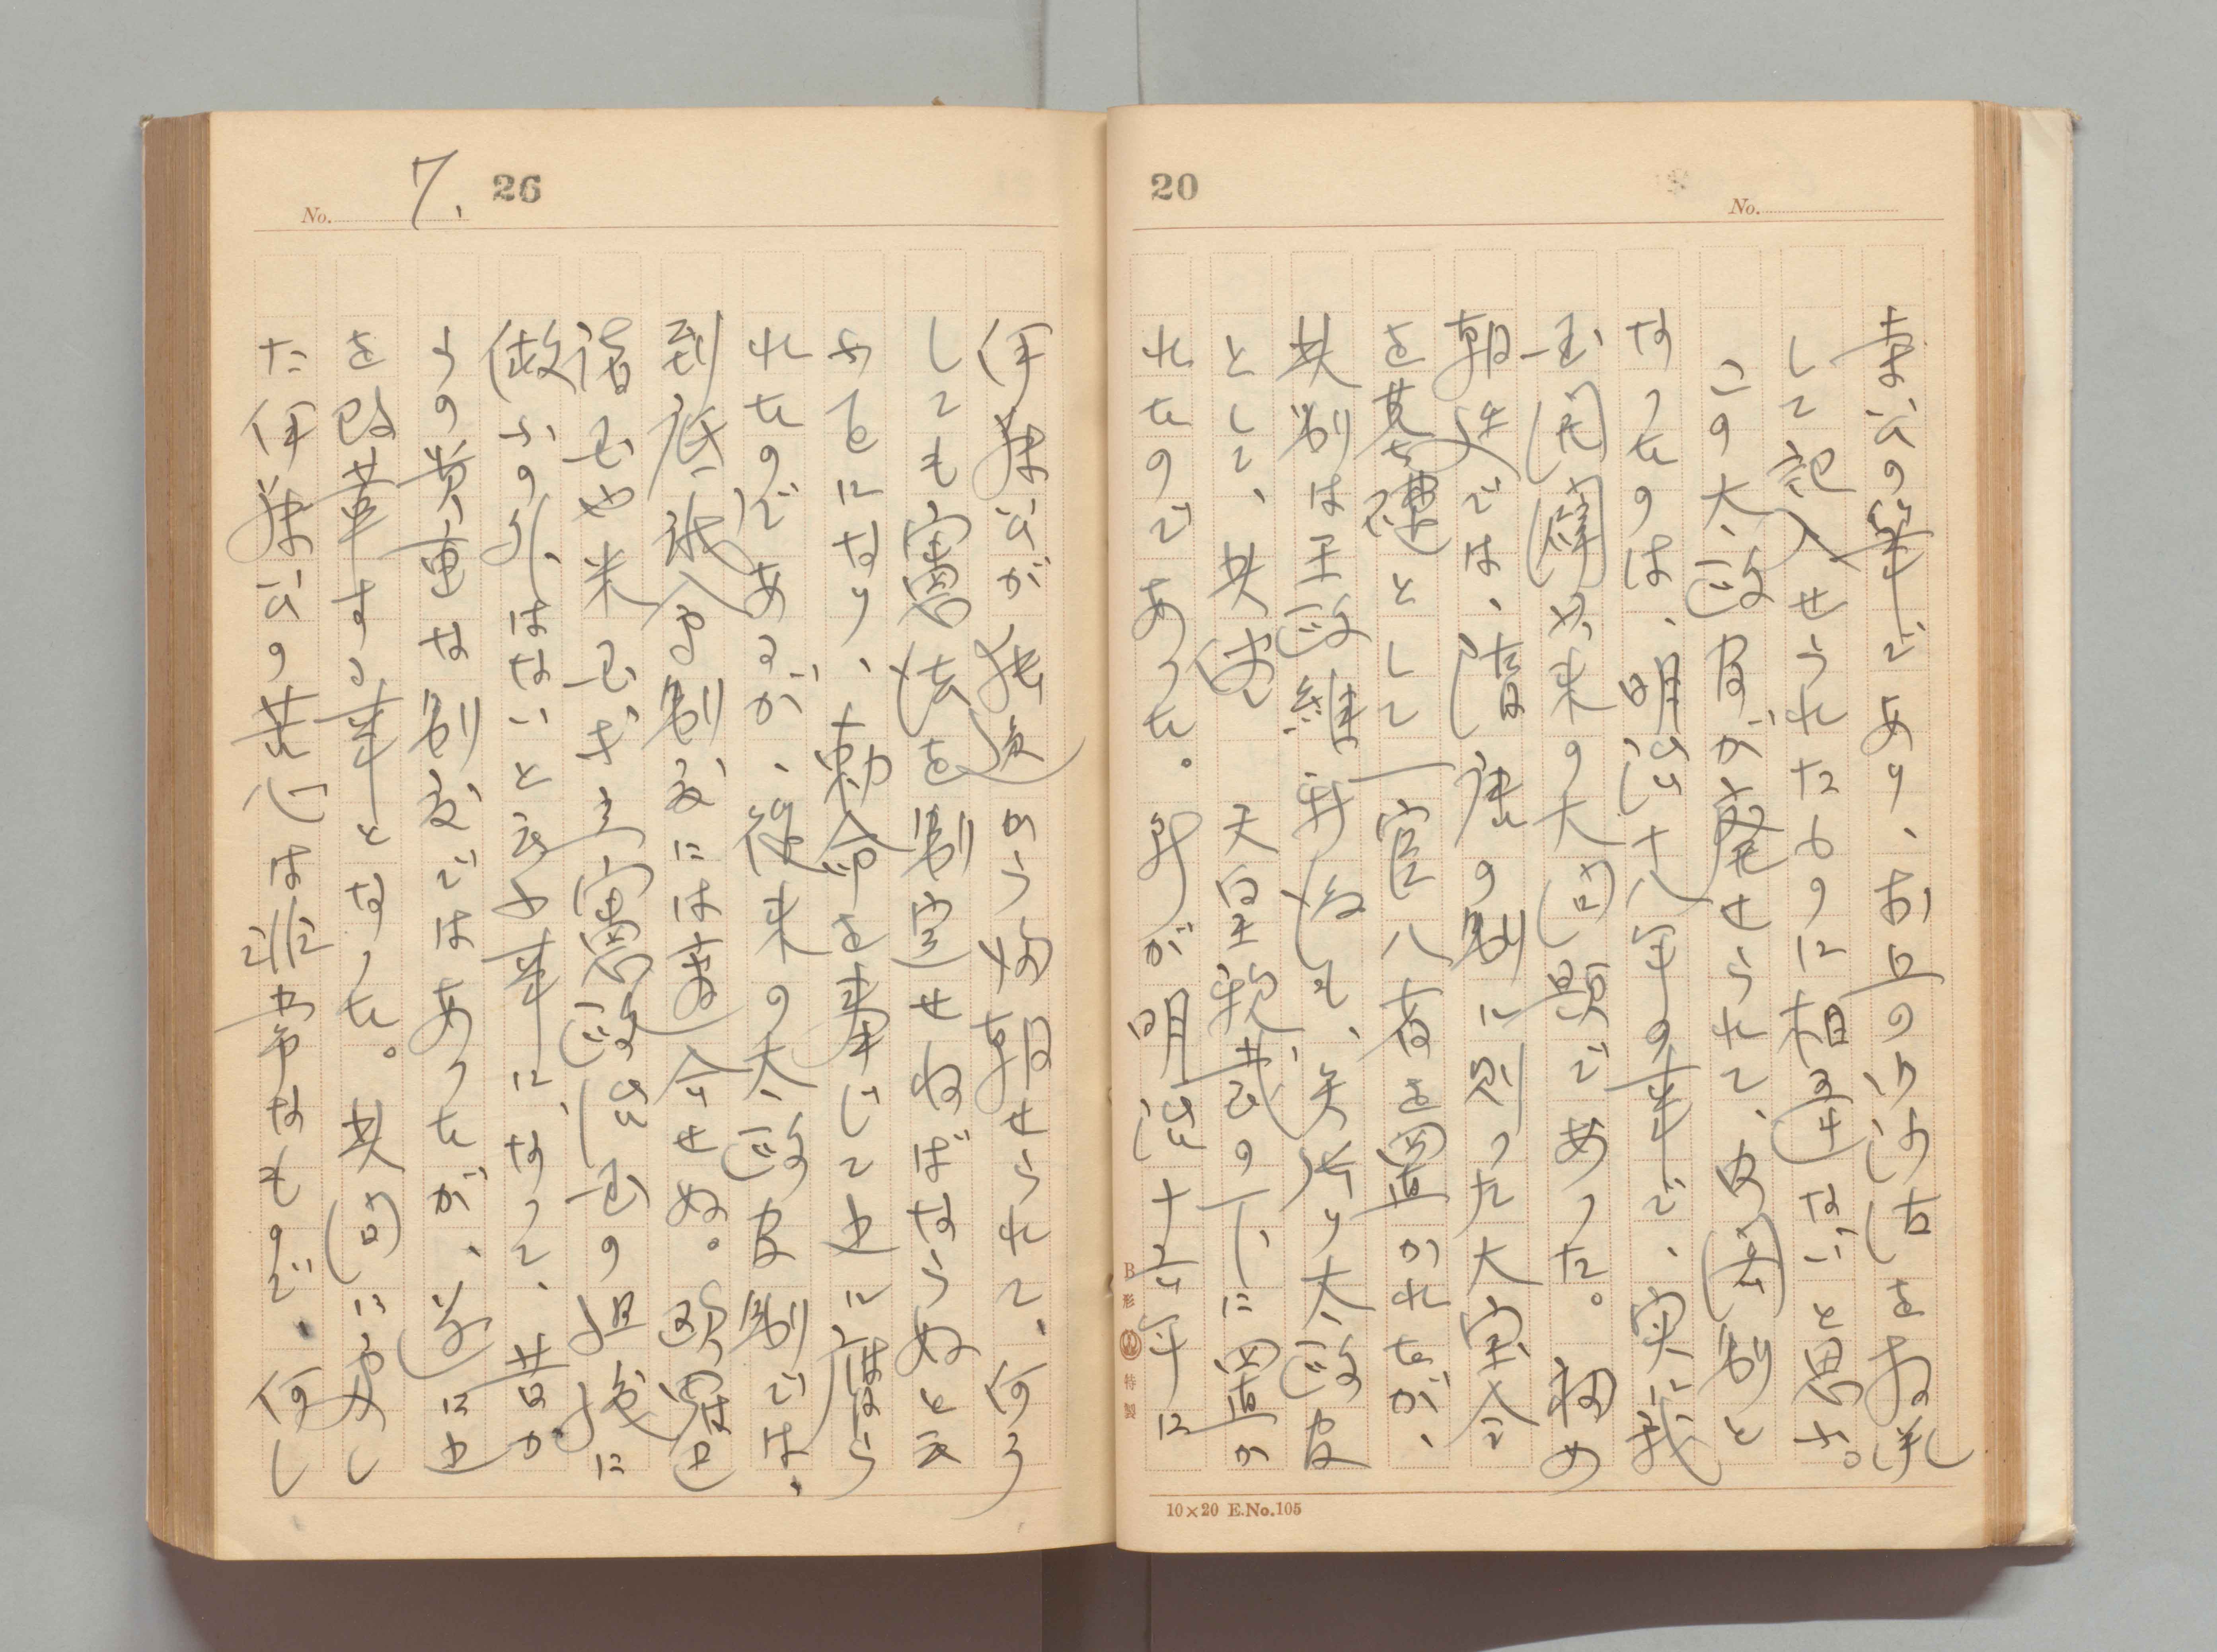 20
No.
藤公の筆であり、お上の御沙汰を
して記入せられたものに相違ないと思ふ。
この太政官が廃せられて、内閣制と
なつたのは、明治十八年の事で、実に我
国開闢以来の大問題であつた。初め
朝廷では、隋唐の制に則つた大宝令
を基礎として二官八省を置かれたが、
其制は王政維新後も、矢張り太政官
として、其儘 天皇親裁の下に置か
れたのであつた。所が明治十六年に
B形 特製
10×20 E.No.105
No. 7. 26
伊藤公が独逸から帰朝せられて、何う
しても憲法を制定せねばならぬと云
ふことになり、勅命を奉じて之に膺ら
れたのであるが、従来の太政官制では、
到底、制度には適合せぬ。欧羅巴
諸国や米国が立憲政治国の組織に
倣ふの外はないと云ふ事になつて、昔か
らの貴重な制度ではあつたが、遂に之
を改革する事となつた。其間に処し
た伊藤公の苦心は非常なもので、何し